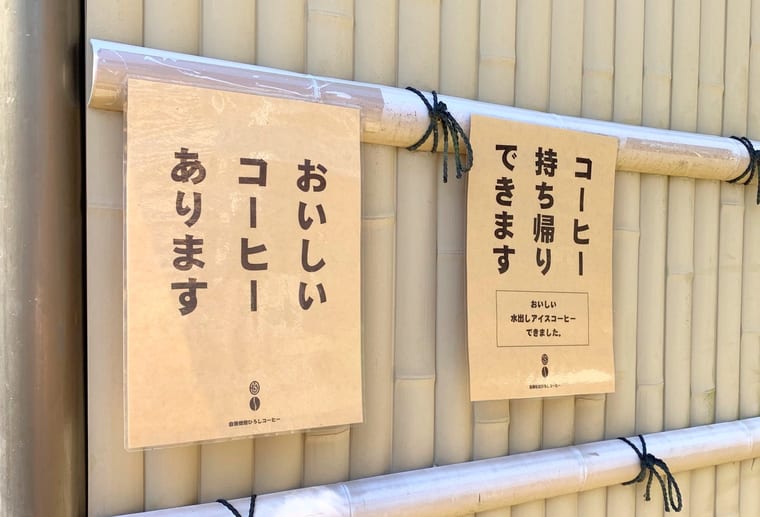 おいしい
コーヒー
あります
自家焙煎ひろしコーヒー
コーヒー
持ち帰り
できます
おいしい
水出しアイスコーヒー
できました。
自家焙煎ひろしコーヒー